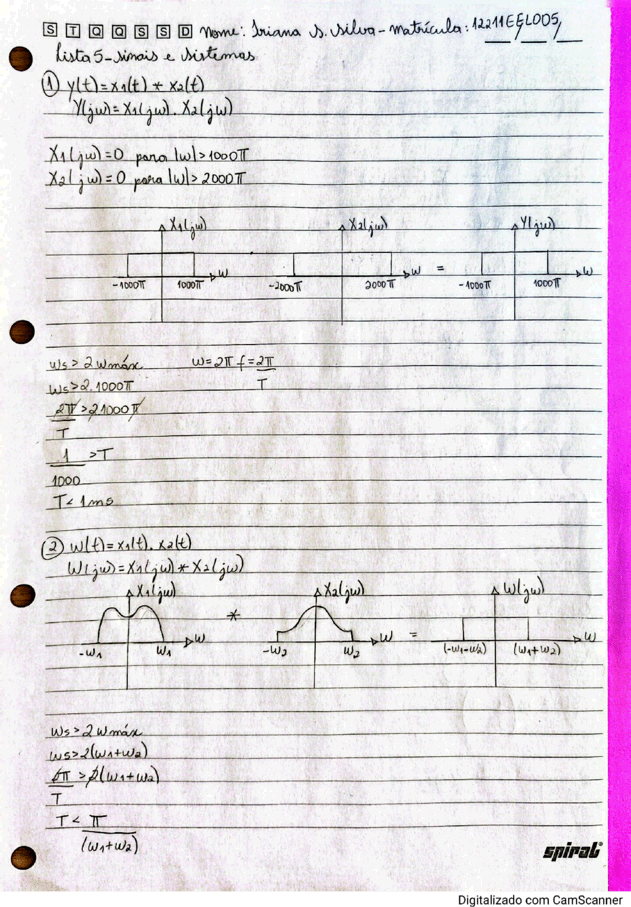 S T Q Q S S D Nome: Iriana S. Silva - matrícula: 12211EEL005
Lista 5 - sinais e sistemas
① y(t) = x1(t) * x2(t)
Y(jω) = X1(jω) . X2(jω)
X1(jω) = 0 para |ω| > 1000π
X2(jω) = 0 para |ω| > 2000π
X1(jω) X2(jω) Y(jω)
ω ω = ω
-1000π 1000π -2000π 2000π -1000π 1000π
ωs > 2 ωmáx ω = 2π f = 2π/T
ωs > 2.1000π
2π/T > 2.1000π
1/1000 > T
T < 1ms
② w(t) = x1(t) . x2(t)
W(jω) = X1(jω) * X2(jω)
X1(jω) * X2(jω) = W(jω)
ω ω ω
-ω1 ω1 -ω2 ω2 (-ω1-ω2) (ω1+ω2)
ωs > 2 ωmáx
ωs > 2(ω1+ω2)
2π/T > 2(ω1+ω2)
T < π/(ω1+ω2)
spiral
Digitalizado com CamScanner